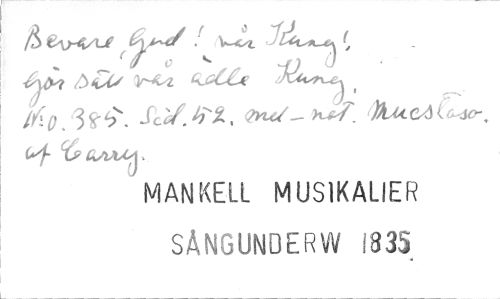 Bevare, Gud! vår Kung!,
Gör säll vår ädle Kung,
No. 385. Sid. 52. mel-not.
af Carey.
MANKELL MUSIKALIER
SÅNGUNDERW 1835